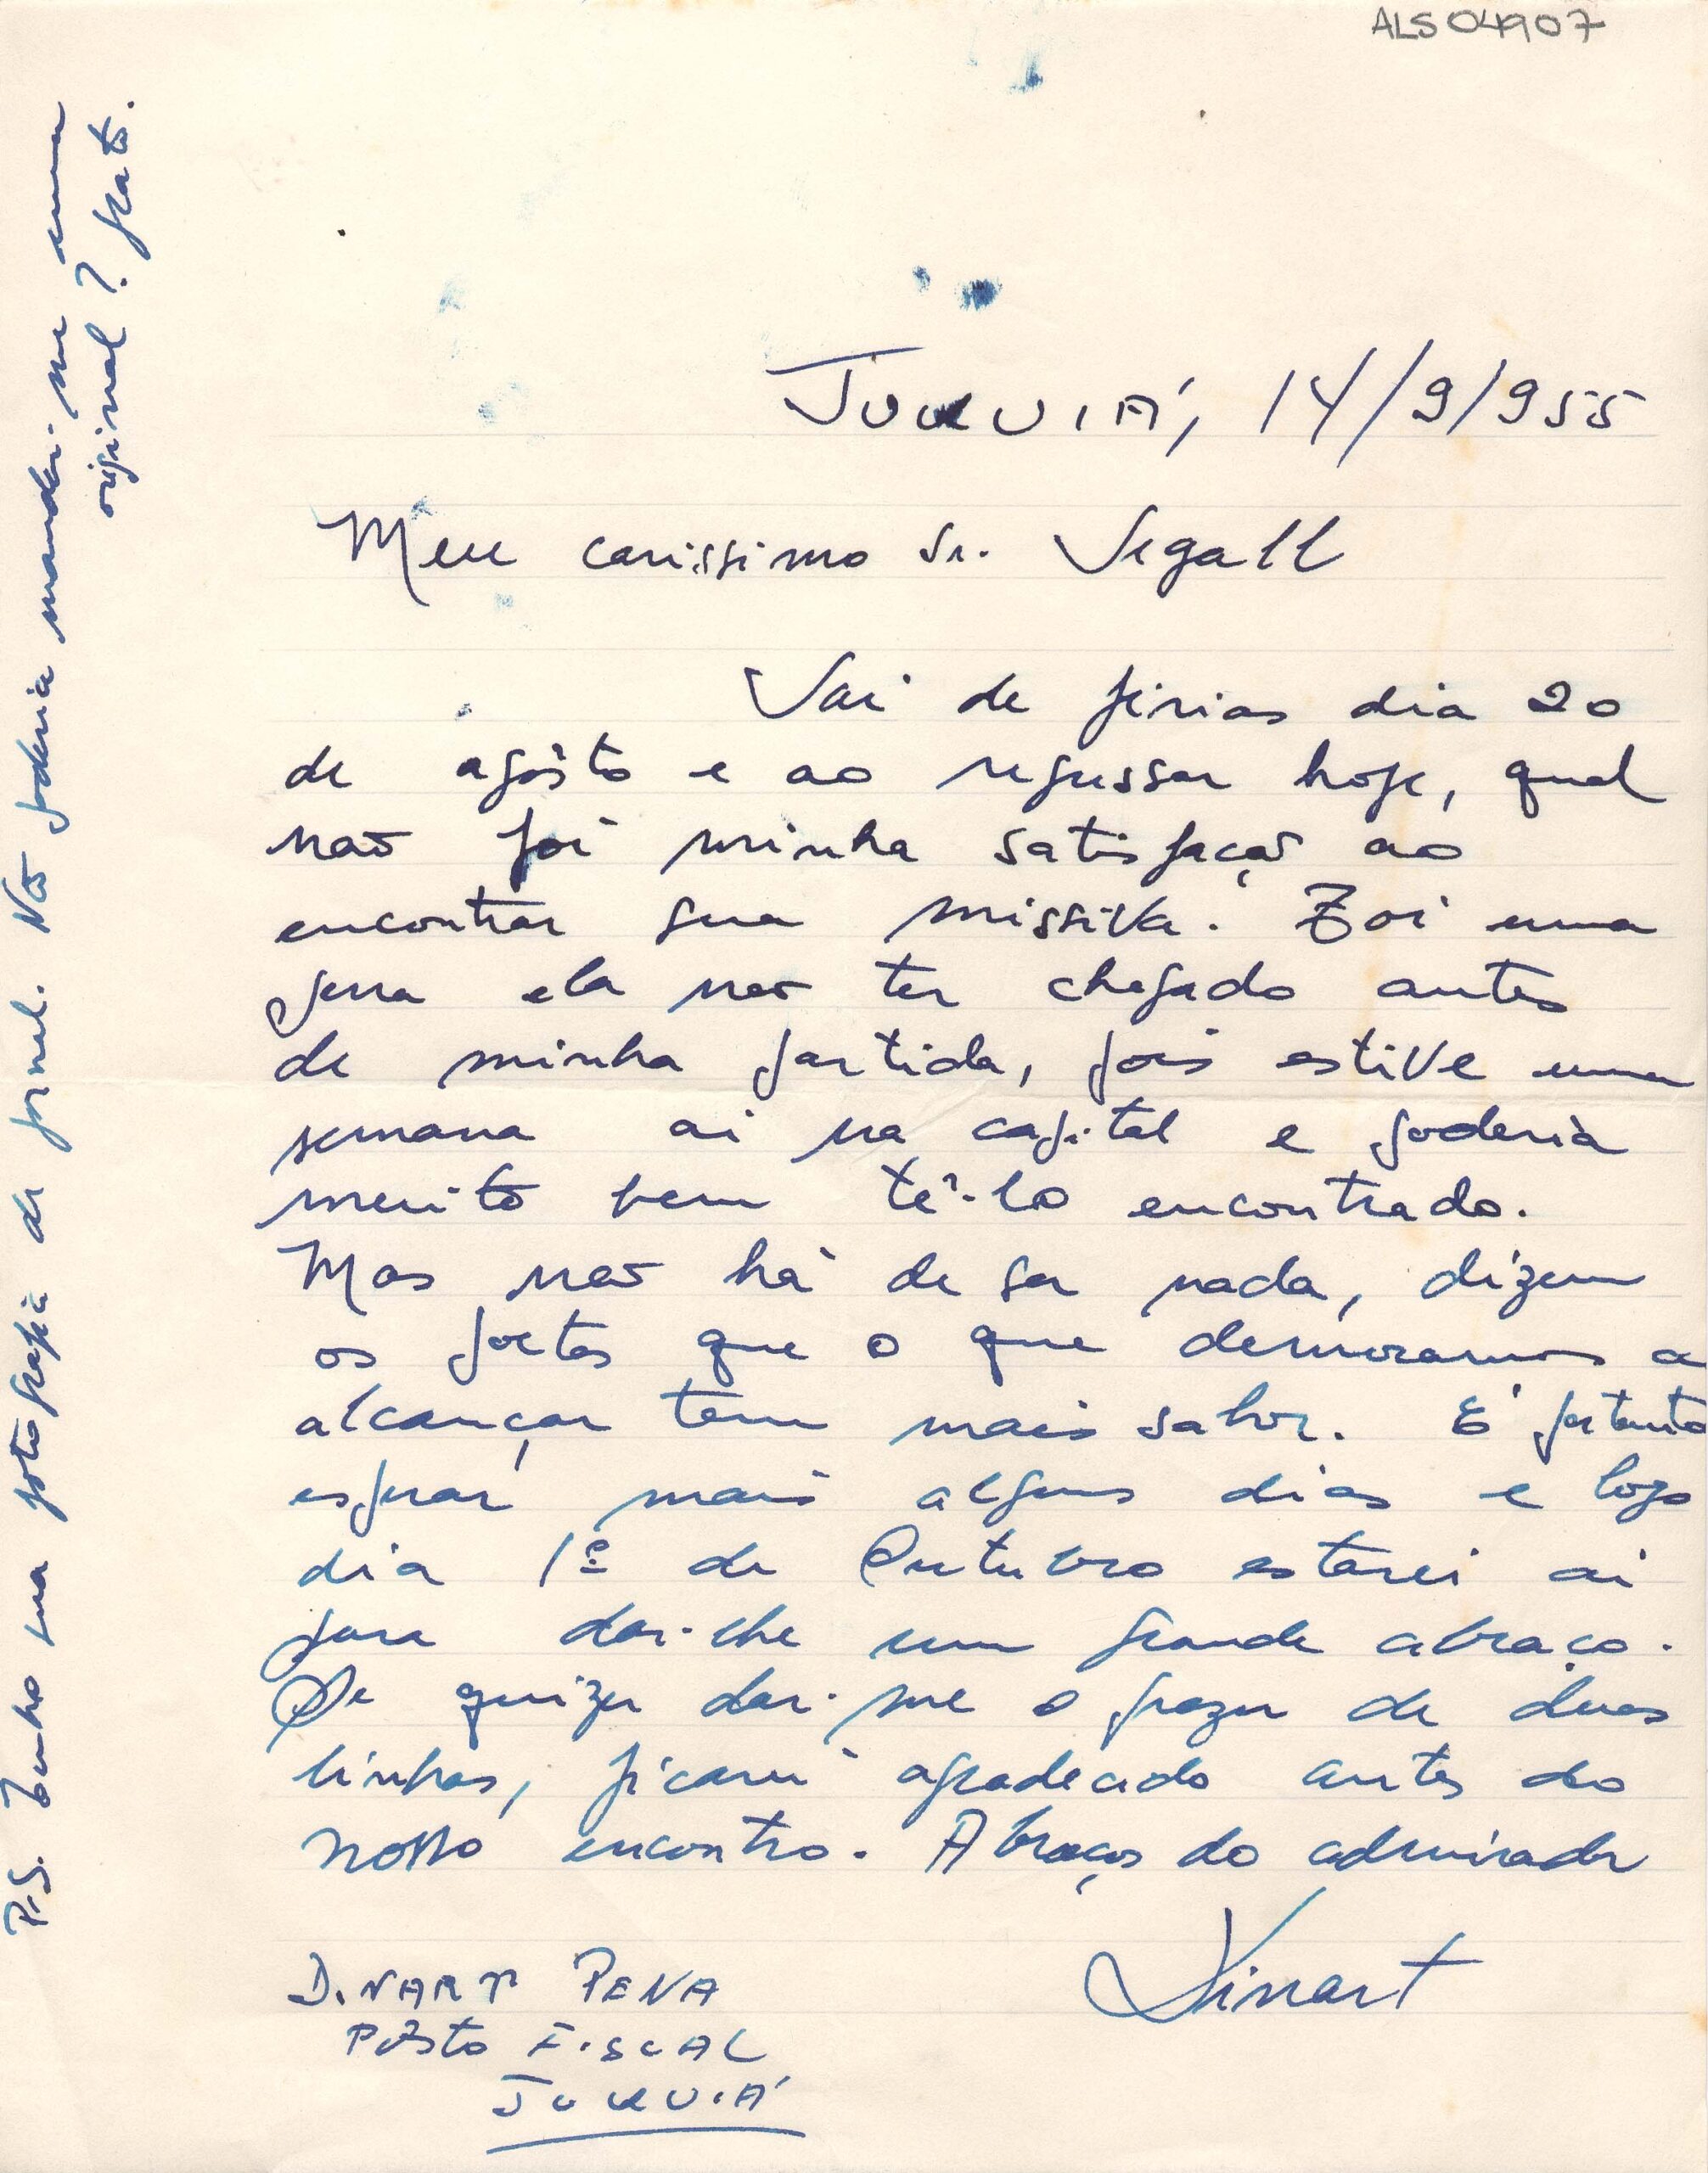 ALS04907
JUQUIÁ, 14/9/955
Meu carissimo Sr. Segall
Sai de férias dia 20
de agôsto e ao regressar hoje, qual
não foi minha satisfação ao
encontrar sua missiva. Foi uma
pena ela não ter chegado antes
de minha partida, pois estive uma
semana ai na capital e poderia
muito bem tê-lo encontrado.
Mas não há de ser nada, dizem
os poetas que o que demoramos a
alcançar tem mais sabor. É portanto
esperar mais alguns dias e logo
dia 1º de Outubro estarei ai
para dar-lhe um grande abraço.
Se quizer dar-me o prazer de duas
linhas, ficarei agradecido antes do
nosso encontro. Abraços do admirador
Dinart
DINART PENA
Pôsto FISCAL
JUQUIÁ
P.S. Tenho sua fotografia de jornal. Não poderia mandar-me uma
original? Grato.